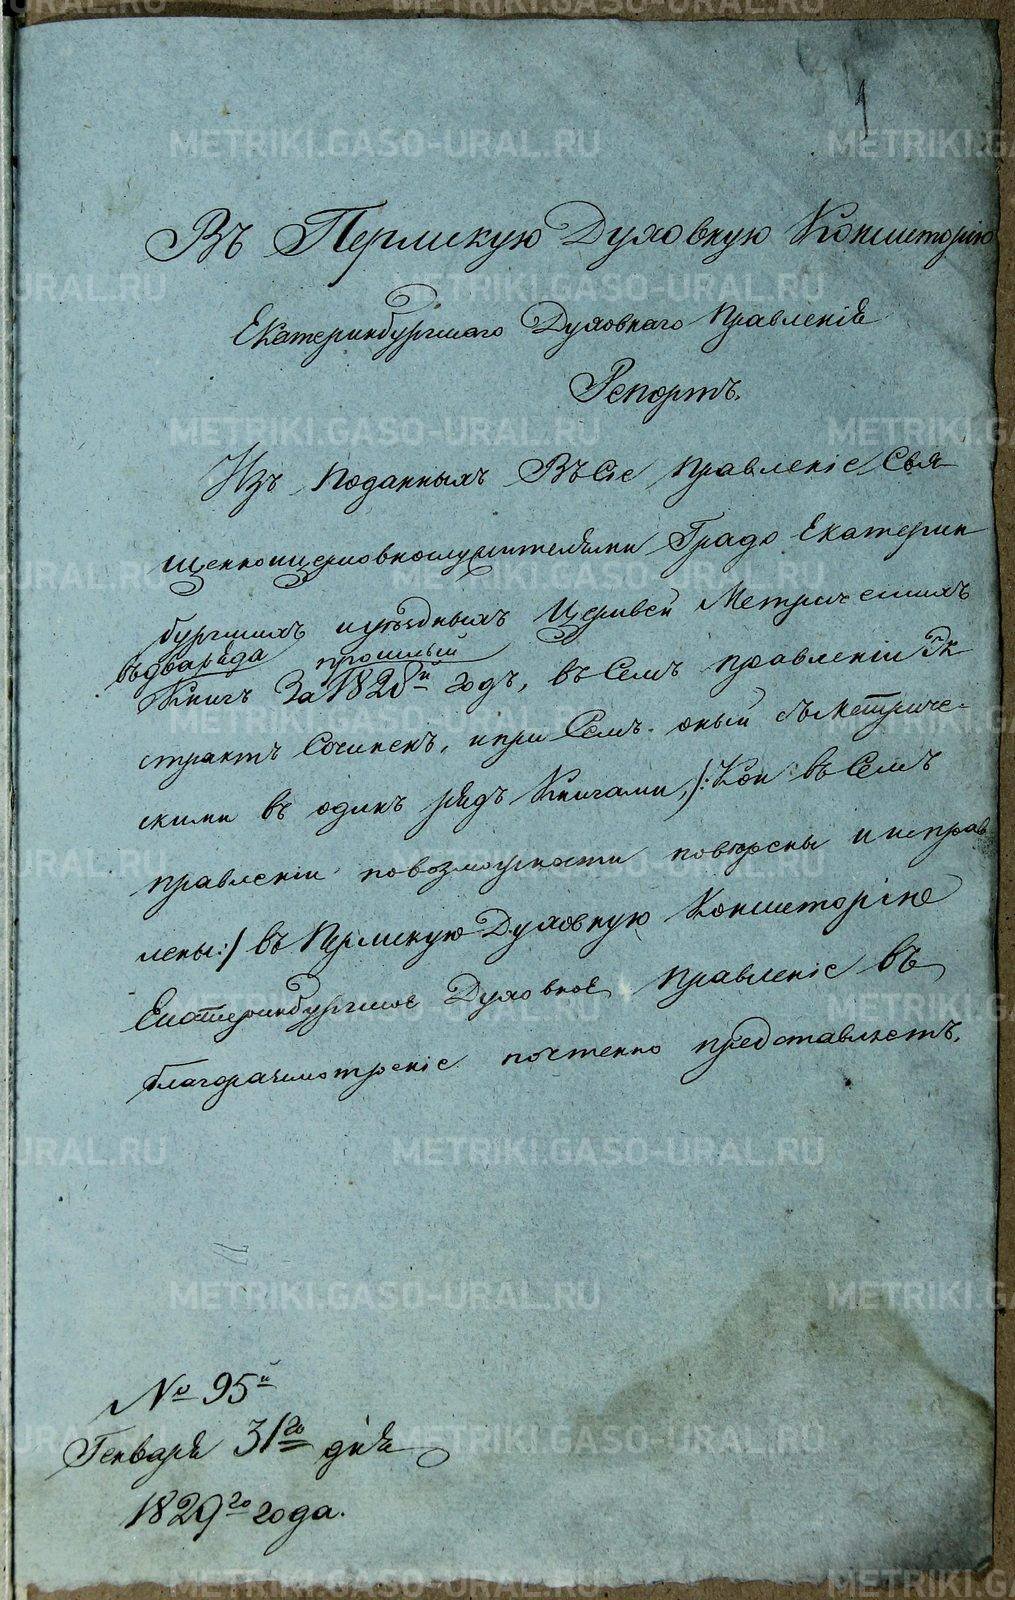 1
Въ Пермскую Духовную Консисторію
Екатеринбургскаго Духовнаго Правленія
Репортъ.
Изъ поданныхъ въ Сіе правленіе Свя
щенноцерковнослужителями Градо Екатерин
бургскихъ и уѣздныхъ Церквей Метрическихъ
въ два ряда прошлый
Книгъ За 1828й годъ, въ Семъ правленіи Эк
страктъ Сочиненъ, и при Семъ оный съ метриче-
скими въ одинъ рядъ Книгами, /:Кои въ Семъ
правленіи по возможности повѣрены и исправ
лены:/ въ Пермскую Духовную Консисторію
Екатеринбургское Духовное Правленіе въ
благоразсмотреніе почтенно представляетъ.
№ 95й
Генваря 31го дня
1829го года.
METRIKI.GASO-URAL.RU